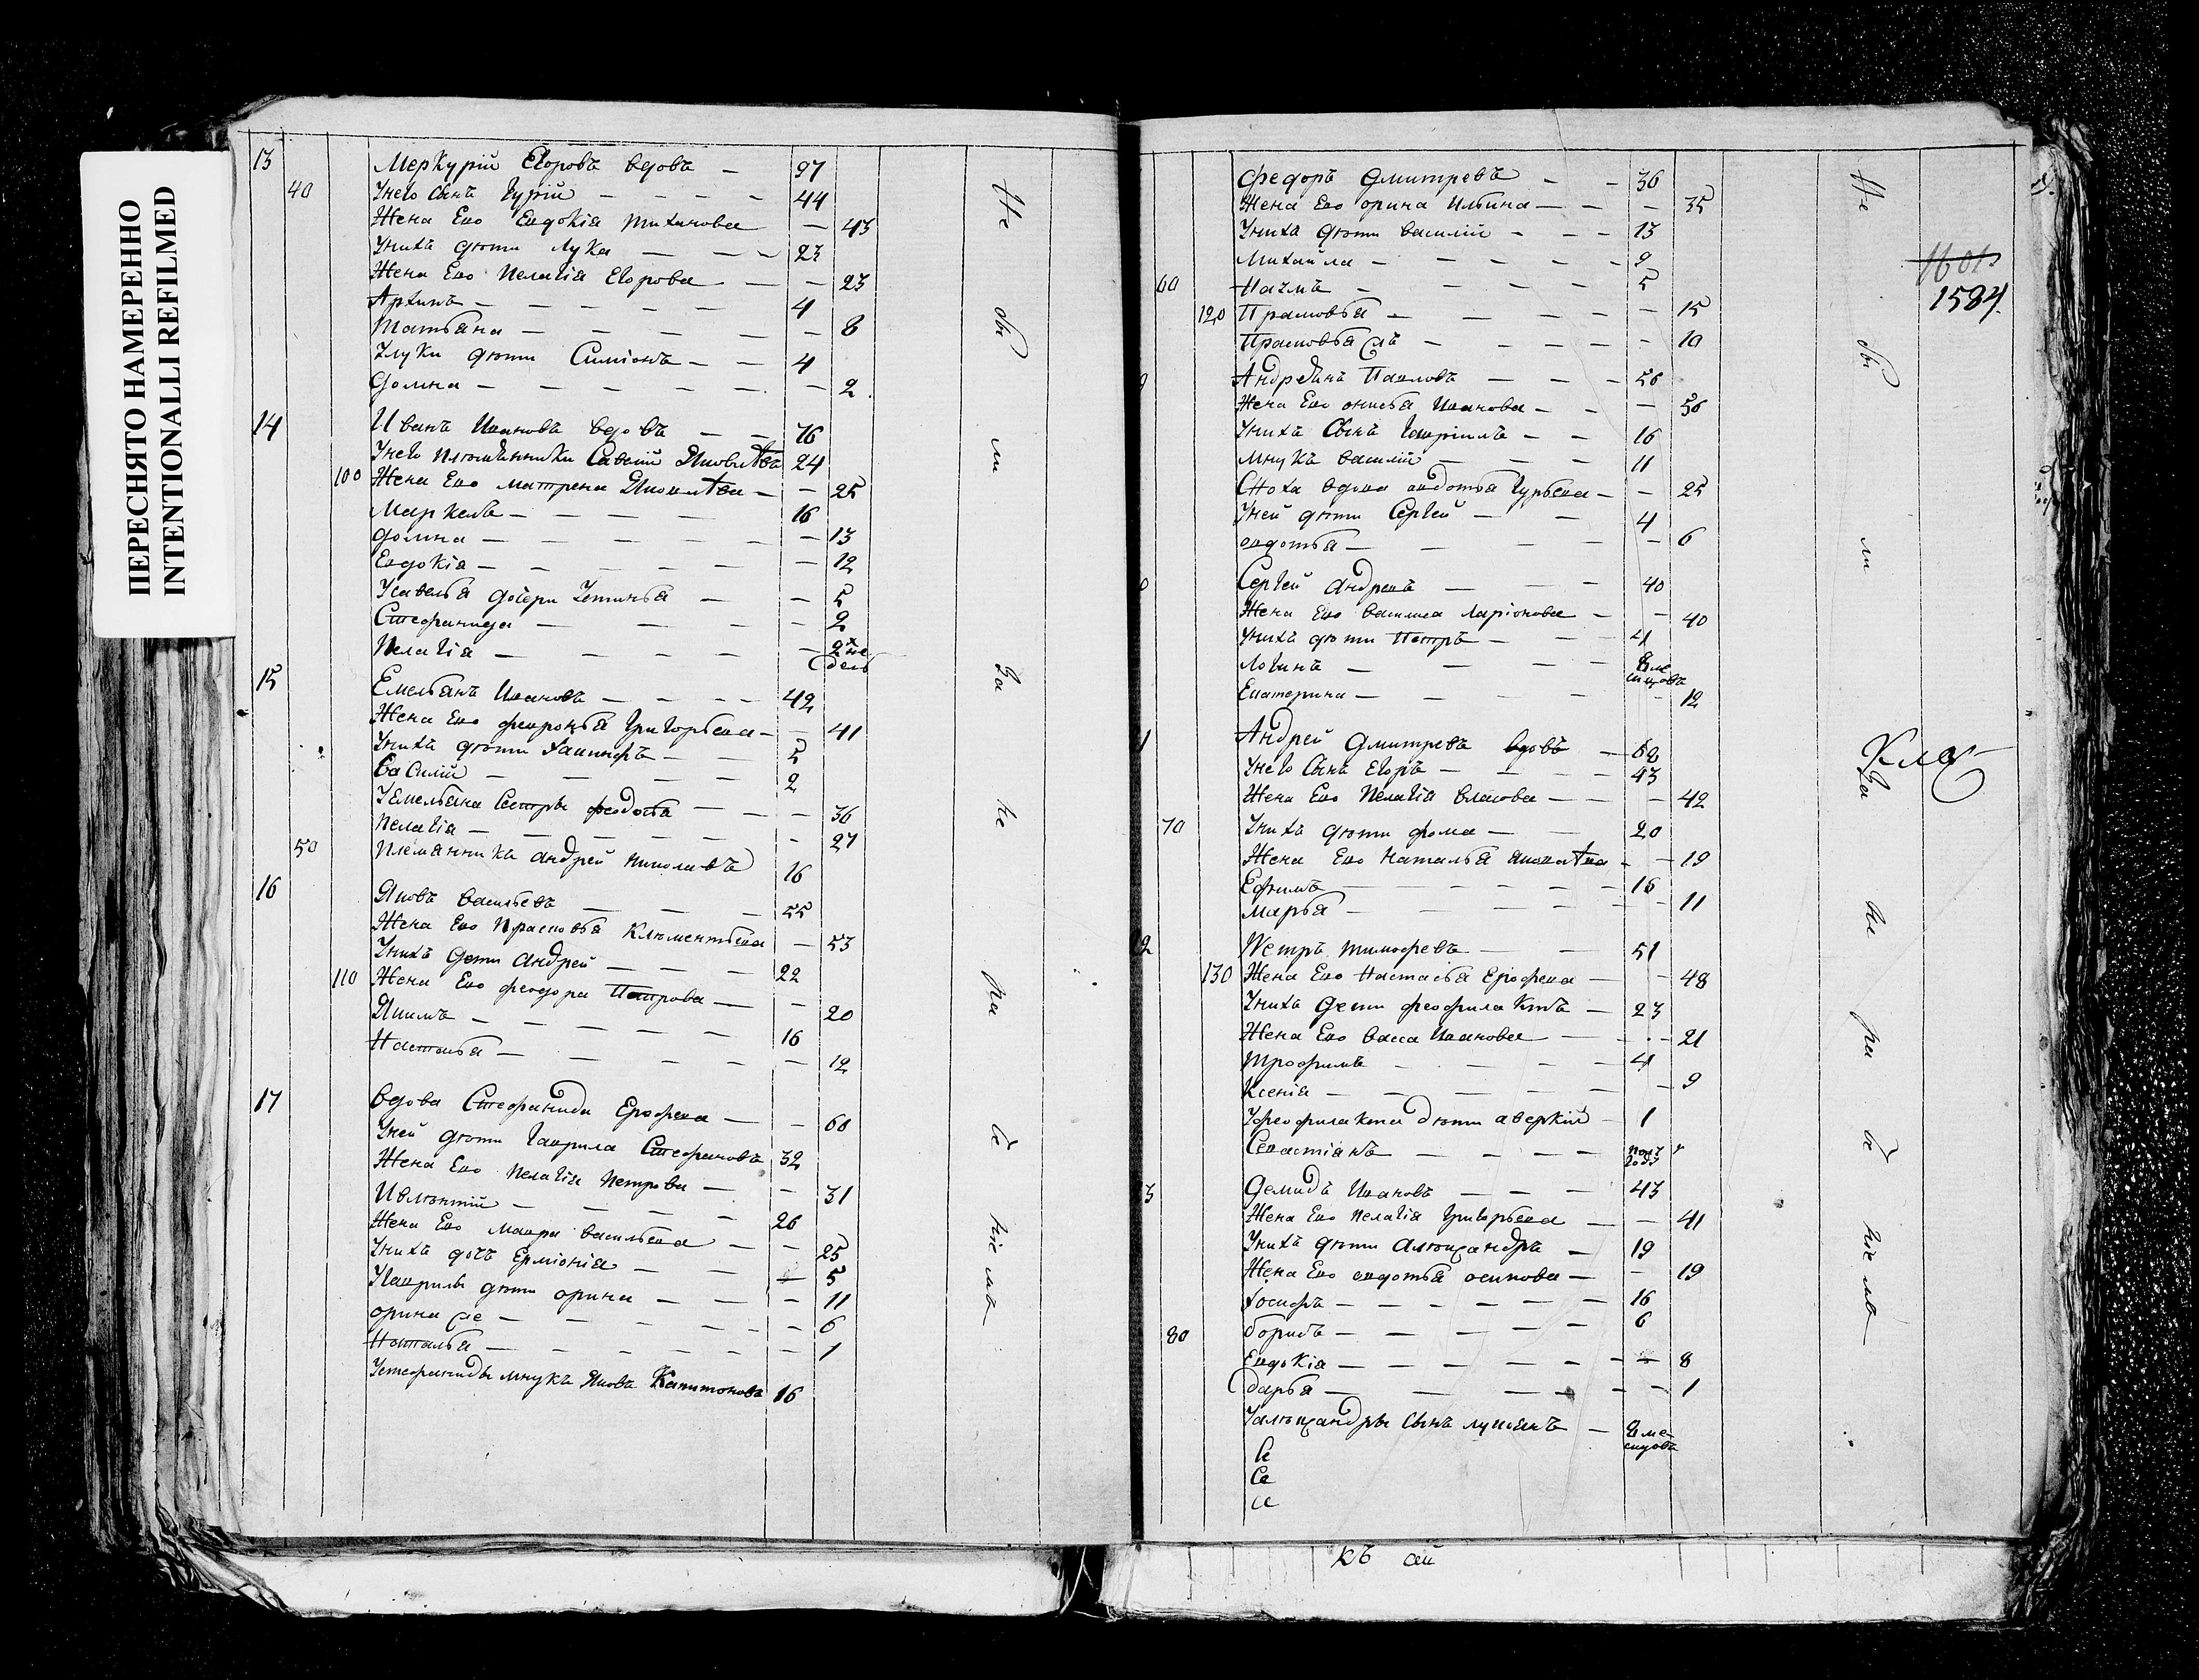 ПЕРЕСНЯТО НАМЕРЕННО
INTENTIONALLI REFILMED
13 Меркурій Егоровъ вдовъ — 97
40 Унего сынъ Гурій — 44
Жена Ево Евдокія Тихинова — 43
Унихъ дѣти Лука — 23
Жена Ево Пелагія Егорова — 23
Архипъ — 4
Татьяна — 8
Улуки дѣти Симіонъ — 4
Домна — 2
14 Иванъ Ивановъ вдовъ — 76
Унего племянники Савелій 24
100 Жена Ево Матрена — 25
Маркелъ — 16
Домна — 13
Евдокія — 12
Усавелья дочери Устинья — 5
Стефанида — 2
Пелагія — 2 не
дель
15 Емельянъ Ивановъ — 42
Жена Ево Февронья Григорьева — 41
Унихъ дѣти — 5
Василій — 2
Уемельяна сестры Федосья — 36
Пелагія — 27
50 Племянникъ Андрей Николаевъ 16
16 Яковъ Васильевъ — 55
Жена Ево Прасковья Клементьева — 53
Унихъ дети Андрей — 22
110 Жена Ево Федора Петрова — 20
Якимъ — 16
Настасья — 12
17 Вдова Стефанида Ерофеева — 60
Уней дѣти Гаврила Стефановъ 32
Жена Ево Пелагія Петрова — 31
Ивлентій — 26
Жена Ево Мавра Васильева — 25
Унихъ дочь Ерміонія — 5
Угаврилы дѣти Орина — 11
Орина же — 6
Наталья — 1
Устефаниды внукъ Яковъ Капитоновъ 16
Не обы ли ва не ра б ніемъ
Федоръ Дмитревъ — 36
Жена Ево Орина Ильина — 35
Унихъ дѣти Василій — 13
Михайла — 9
60 Наумъ — 5
120 Прасковья — 15
Прасковья — 10
Андреянъ Павловъ — 56
Жена Ево Онисья Иванова — 56
Унихъ сынъ Гавріилъ — 16
Внукъ Василій — 11
Сноха вдова Авдотья Гурьева — 25
Уней дѣти Сергей — 4
Авдотья — 6
Сергей Андревъ — 40
Жена Ево Василиса Ларіонова — 40
Унихъ дѣти Петръ — 4
Логинъ — 8 ме
сицовъ
Екатерина — 12
1 Андрей Дмитревъ вдовъ — 62
Унего сынъ Егоръ — 43
Жена Ево Пелагія Власова — 42
70 Унихъ дѣти Фома — 20
Жена Ево Наталья — 19
Ефимъ — 16
Марья — 11
2 Петръ Тимофевъ — 51
130 Жена Ево Настасья Ерофеева — 48
Унихъ дети Феофилактъ — 23
Жена Ево Васса Иванова — 21
Трофимъ — 4
Ксенія — 9
Уфеофилакта дѣти Аверкій — 1
Севастіанъ — полу
году
3 Демидъ Ивановъ — 43
Жена Ево Пелагія Григорьева — 41
Унихъ дѣти Александръ — 19
Жена Ево Авдотья Осипова — 19
Іосифъ — 16
80 Борисъ — 6
Евдокія — 8
Дарья — 1
Уалександры сынъ Лукіянъ — 8 ме
сицовъ
Не обы ли ва не ра б ніемъ
1584
къ ай